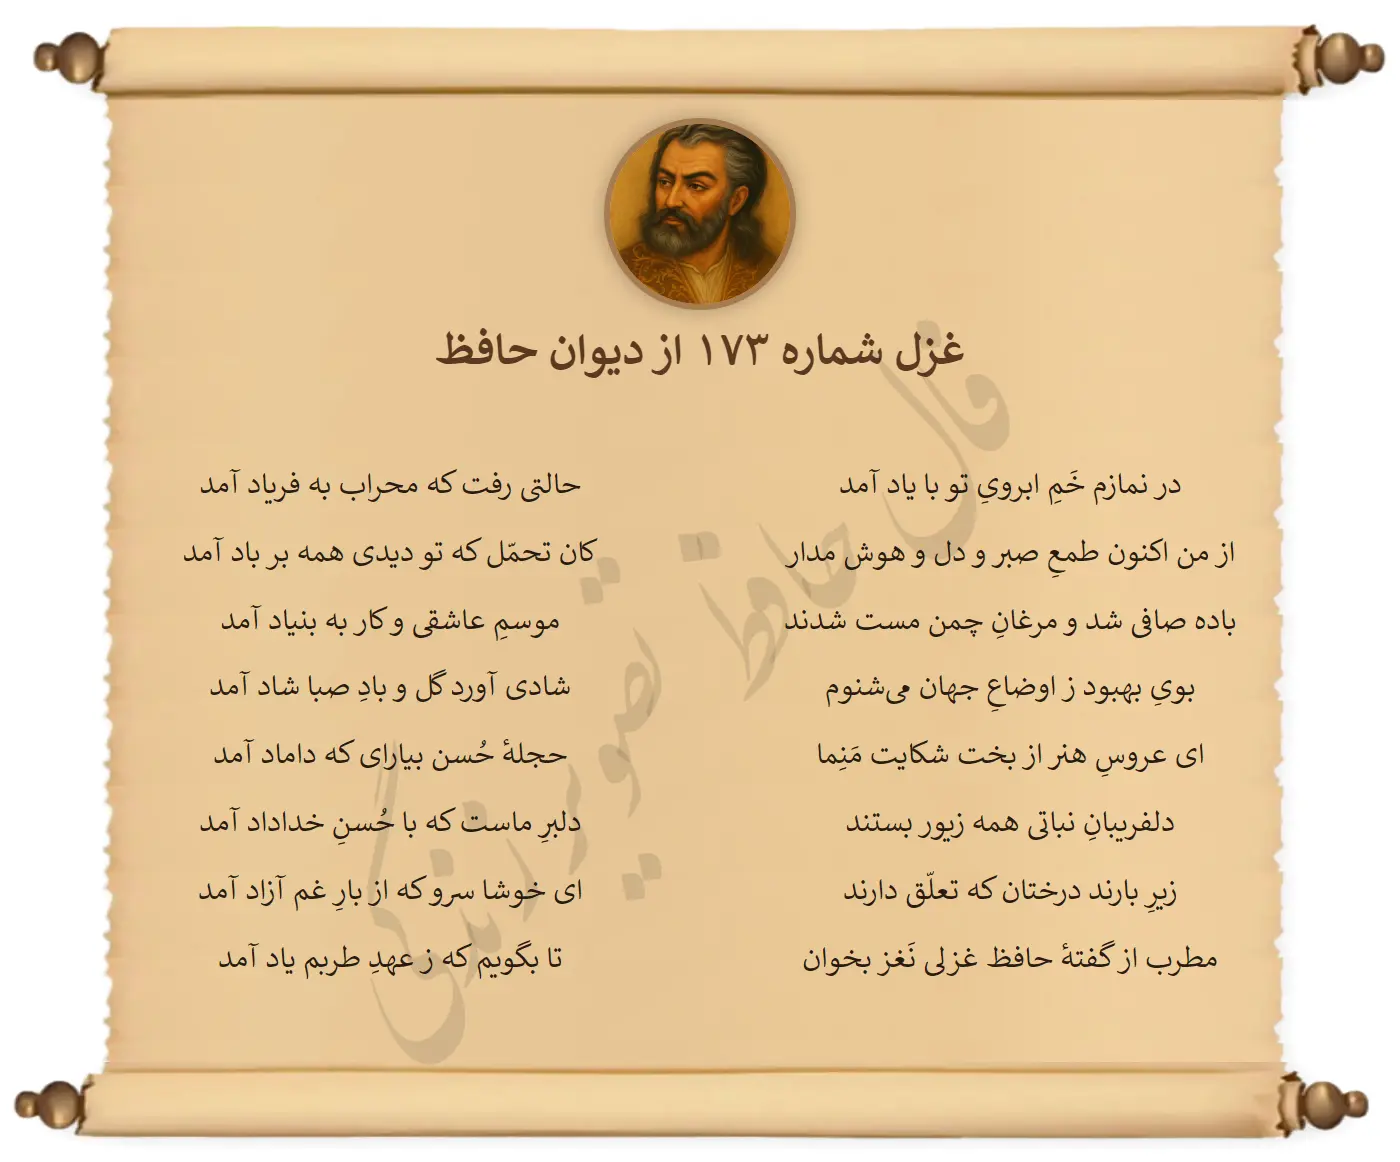 غزل شماره ۱۷۳ از دیوان حافظ
در نمازم خَمِ ابرویِ تو با یاد آمد
حالتی رفت که محراب به فریاد آمد
از من اکنون طمعِ صبر و دل و هوش مدار
کان تحمّل که تو دیدی همه بر باد آمد
باده صافی شد و مرغانِ چمن مست شدند
موسمِ عاشقی و کار به بنیاد آمد
بویِ بهبود ز اوضاعِ جهان می‌شنوم
شادی آورد گل و بادِ صبا شاد آمد
ای عروسِ هنر از بخت شکایت مَنِما
حجلهٔ حُسن بیارای که داماد آمد
دلفریبانِ نباتی همه زیور بستند
دلبرِ ماست که با حُسنِ خداداد آمد
زیرِ بارند درختان که تعلّق دارند
ای خوشا سرو که از بارِ غم آزاد آمد
مطرب از گفتهٔ حافظ غزلی نَغز بخوان
تا بگویم که ز عهدِ طربم یاد آمد
فال حافظ تصویر زندگی